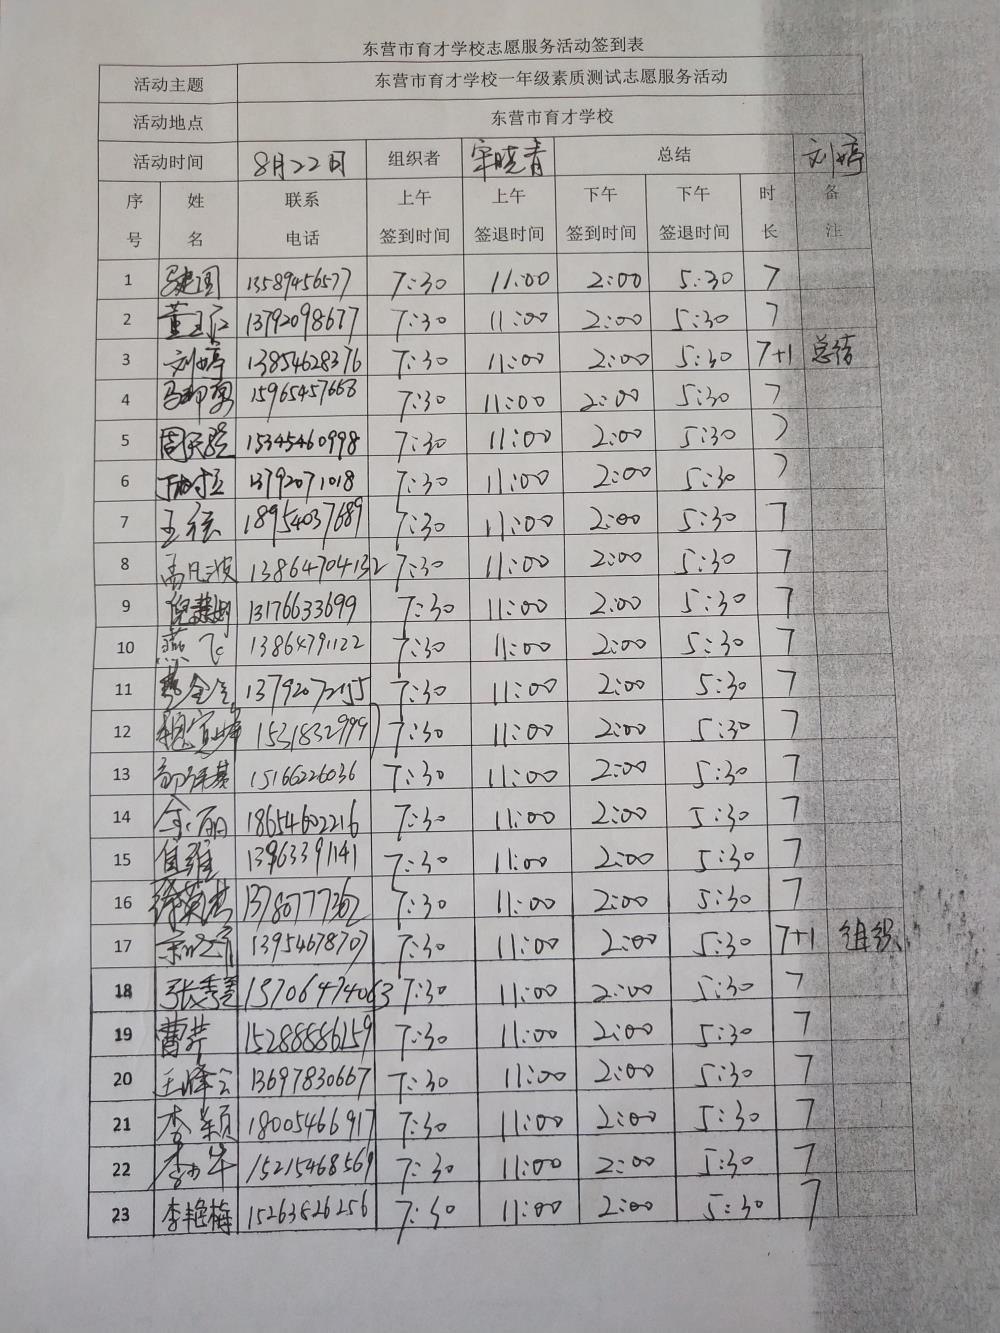 东营市育才学校志愿服务活动签到表
活动主题 东营市育才学校一年级素质测试志愿服务活动
活动地点 东营市育才学校
活动时间 8月22日 组织者 宋晓青 总结 刘婷
序 姓 联系 上午 上午 下午 下午 时 备
号 名 电话 签到时间 签退时间 签到时间 签退时间 长 注
1 13589456577 7:30 11:00 2:00 5:30 7
2 董 13792098677 7:30 11:00 2:00 5:30 7
3 刘婷 13854628376 7:30 11:00 2:00 5:30 7+1 总结
4 15965457668 7:30 11:00 2:00 5:30 7
5 周 15345460998 7:30 11:00 2:00 5:30 7
6 13792071018 7:30 11:00 2:00 5:30 7
7 王 18954037689 7:30 11:00 2:00 5:30 7
8 孟凡波 13864704132 7:30 11:00 2:00 5:30 7
9 倪 13176633699 7:30 11:00 2:00 5:30 7
10 燕飞 13864791122 7:30 11:00 2:00 5:30 7
11 13792072155 7:30 11:00 2:00 5:30 7
12 15318329997 7:30 11:00 2:00 5:30 7
13 15166226036 7:30 11:00 2:00 5:30 7
14 18654602216 7:30 11:00 2:00 5:30 7
15 13963391141 7:30 11:00 2:00 5:30 7
16 徐英 13780777362 7:30 11:00 2:00 5:30 7
17 宋晓青 13954678707 7:30 11:00 2:00 5:30 7+1 组织
18 张秀 15706474063 7:30 11:00 2:00 5:30 7
19 曹芹 15288886159 7:30 11:00 2:00 5:30 7
20 王 13697830667 7:30 11:00 2:00 5:30 7
21 李颖 18005466917 7:30 11:00 2:00 5:30 7
22 李 15215468569 7:30 11:00 2:00 5:30 7
23 李艳梅 15263826256 7:30 11:00 2:00 5:30 7